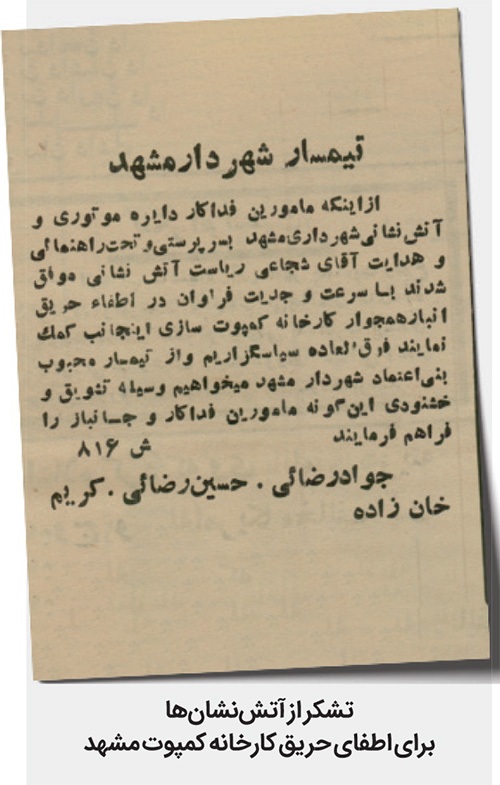 تیمسار شهردار مشهد
از اینکه مامورین فداکار دایره موتوری و
آتش نشانی شهرداری مشهد بسرپرستی و تحت راهنمائی
و هدایت آقای شجاعی ریاست آتش نشانی موفق
شدند با سرعت و جدیت فراوان در اطفاء حریق
انبار همجوار کارخانه کمپوت سازی اینجانب کمك
نمایند فوق‌العاده سپاسگزاریم و از تیمسار محبوب
بنی‌اعتماد شهردار مشهد میخواهیم وسیله تشویق و
خشنودی این گونه مامورین فداکار و جانباز را
فراهم فرمایند
ش ۸۱۶
جواد رضائی . حسین رضائی . کریم
خان زاده
تشکر از آتش‌نشان‌ها
برای اطفای حریق کارخانه کمپوت مشهد